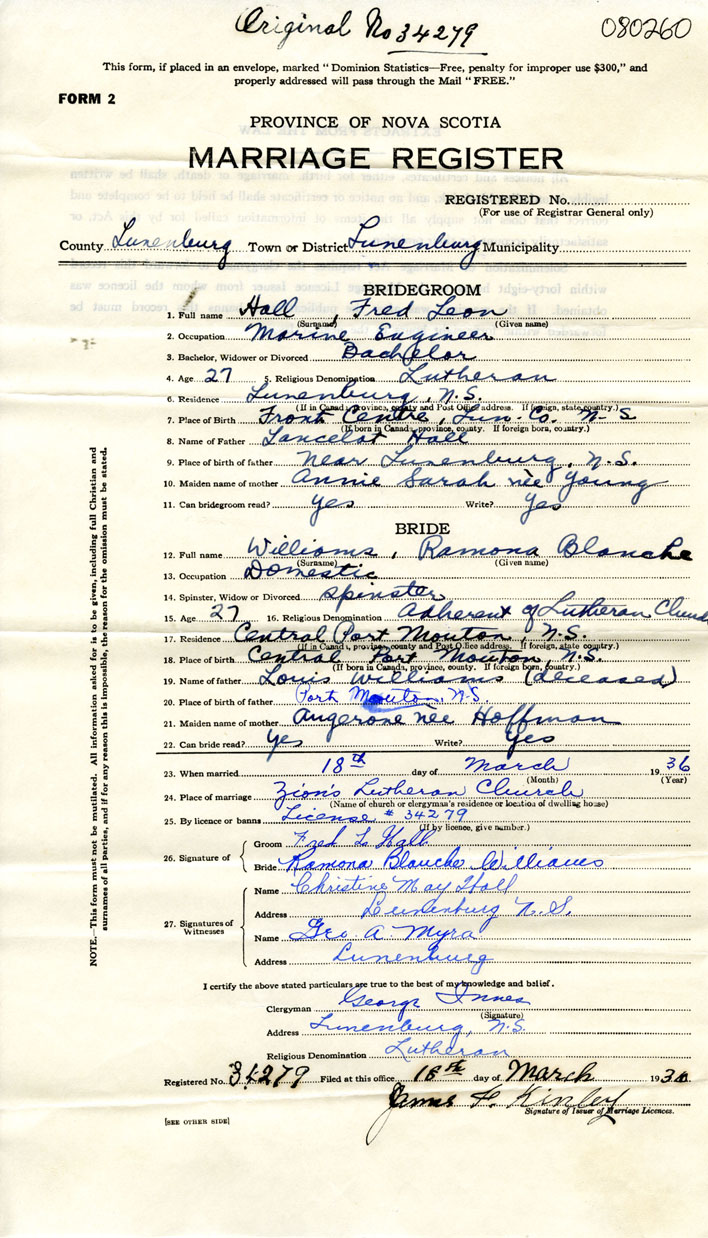 Original No 34279
080260
This form, if placed in an envelope, marked "Dominion Statistics—Free, penalty for improper use $300," and
properly addressed will pass through the Mail "FREE."
FORM 2
PROVINCE OF NOVA SCOTIA
MARRIAGE REGISTER
REGISTERED No.
(For use of Registrar General only)
County Lunenburg Town or District Lunenburg Municipality
BRIDEGROOM
1. Full name Hall, Fred Leon
(Surname) (Given name)
2. Occupation Marine Engineer
3. Bachelor, Widower or Divorced Bachelor
4. Age 27 5. Religious Denomination Lutheran
6. Residence Lunenburg, N.S.
(If in Canada, province, county and Post Office address. If foreign, state country.)
7. Place of Birth Front Centre, Lun. Co. N.S
(If born in Canada, province, county. If foreign born, country.)
8. Name of Father Lancelot Hall
9. Place of birth of father Near Lunenburg, N.S.
10. Maiden name of mother Annie Sarah née Young
11. Can bridegroom read? Yes Write? Yes
BRIDE
12. Full name Williams, Ramona Blanche
(Surname) (Given name)
13. Occupation Domestic
14. Spinster, Widow or Divorced Spinster
15. Age 27 16. Religious Denomination Adherent of Lutheran Church
17. Residence Central Port Mouton, N.S.
(If in Canada, province, county and Post Office address. If foreign, state country.)
18. Place of birth Central Port Mouton, N.S.
(If born in Canada, province, county. If foreign born, country.)
19. Name of father Louis Williams (deceased)
20. Place of birth of father Port Mouton, N.S.
21. Maiden name of mother Angerone née Hoffman
22. Can bride read? Yes Write? Yes
23. When married 18th day of March 1936
(Month) (Year)
24. Place of marriage Zion's Lutheran Church
(Name of church or clergyman's residence or location of dwelling house)
25. By licence or banns License # 34279
(If by licence, give number.)
26. Signature of
Groom Fred L Hall
Bride Ramona Blanche Williams
27. Signatures of Witnesses
Name Christine May Hall
Address Lunenburg N.S.
Name Geo. A. Myra
Address Lunenburg
I certify the above stated particulars are true to the best of my knowledge and belief.
Clergyman George Innes
(Signature)
Address Lunenburg, N.S.
Religious Denomination Lutheran
Registered No. 34279 Filed at this office 18th day of March 1936
James F. Kinley
Signature of Issuer of Marriage Licences.
[SEE OTHER SIDE]
NOTE.—This form must not be mutilated. All information asked for is to be given, including full Christian and
surnames of all parties, and if for any reason this is impossible, the reason for the omission must be stated.